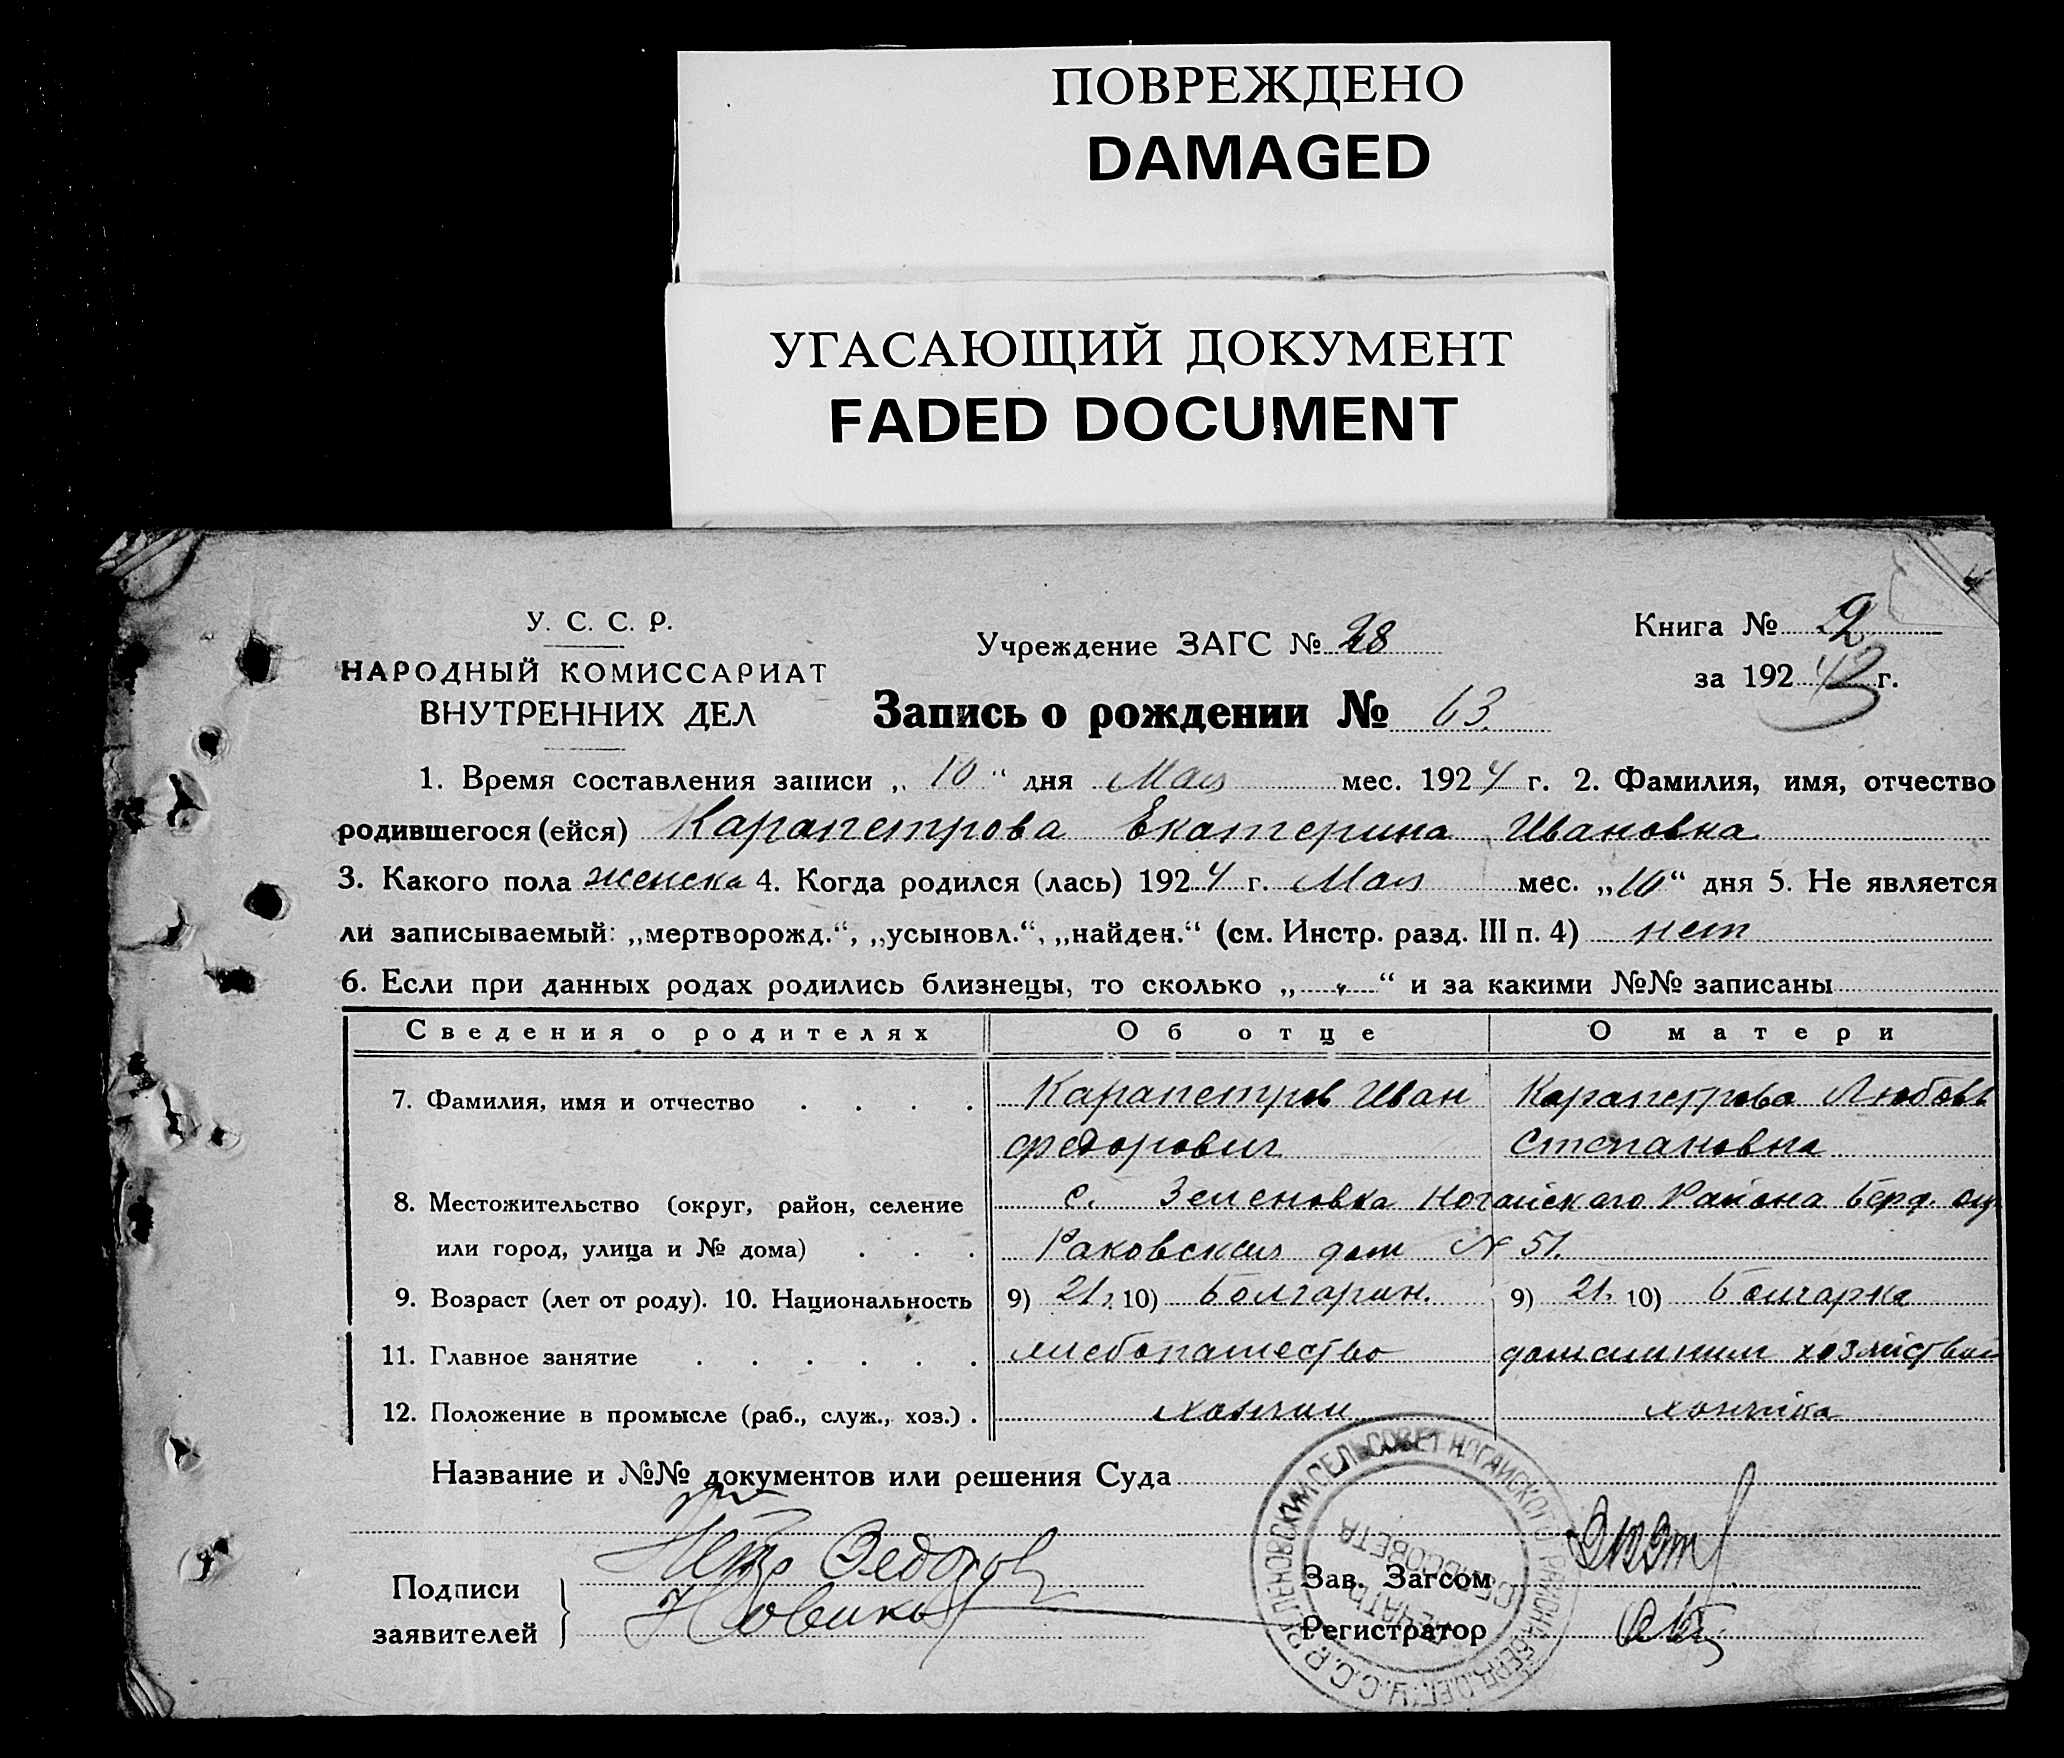 ПОВРЕЖДЕНО
DAMAGED
УГАСАЮЩИЙ ДОКУМЕНТ
FADED DOCUMENT
У. С. С. Р.
НАРОДНЫЙ КОМИССАРИАТ
ВНУТРЕННИХ ДЕЛ
Учреждение ЗАГС № 28
Книга № 2
за 192 г.
Запись о рождении № 63.
1. Время составления записи „ 10 “ дня Мая мес. 1924 г. 2. Фамилия, имя, отчество
родившегося (ейся) Карапетрова Екатерина Ивановна
3. Какого пола женска 4. Когда родился (лась) 1924 г. Мая мес. „10“ дня 5. Не является
ли записываемый: „мертворожд.“, „усыновл.“, „найден.“ (см. Инстр. разд. III п. 4) нет
6. Если при данных родах родились близнецы, то сколько „ “ и за какими №№ записаны
Сведения о родителях Об отце О матери
7. Фамилия, имя и отчество Карапетров Иван Карапетрова Любовь
Федорович Степановна
8. Местожительство (округ, район, селение с. Зеленовка Ногайского Района Берд. окр.
или город, улица и № дома) Раковская дом № 51.
9. Возраст (лет от роду). 10. Национальность 9) 21. 10) Болгарин. 9) 21. 10) Болгарка
11. Главное занятие хлебопашество домашним хозяйством
12. Положение в промысле (раб., служ., хоз.)
Название и №№ документов или решения Суда
Подписи
заявителей
Петр Федоров
Новиков
Зав. Загсом
Регистратор
У.С.С.Р. ЗЕЛЕНОВСКИЙ СЕЛЬСОВЕТ НОГАЙСКОГО РАЙОНА БЕРД.
ПЕЧАТЬ
СЕЛЬСОВЕТА